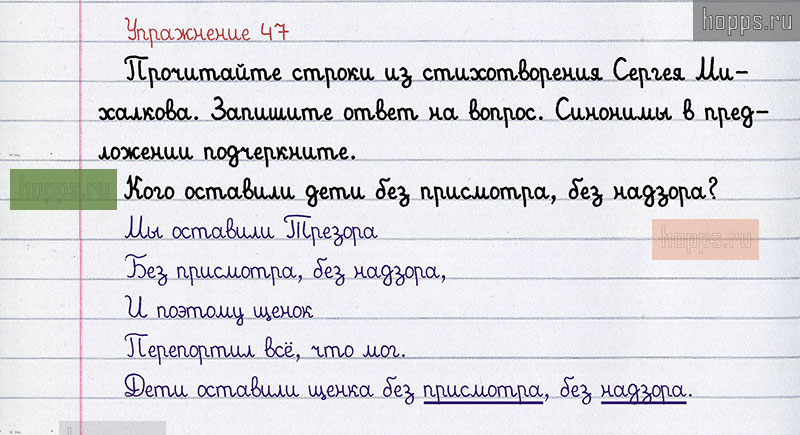 hopps.ru
Упражнение 47
Прочитайте строки из стихотворения Сергея Ми-
халкова. Запишите ответ на вопрос. Синонимы в пред-
ложении подчеркните.
hopps.ru
Кого оставили дети без присмотра, без надзора?
Мы оставили Трезора
hopps.ru
Без присмотра, без надзора,
И поэтому щенок
Перепортил всё, что мог.
Дети оставили щенка без присмотра, без надзора.